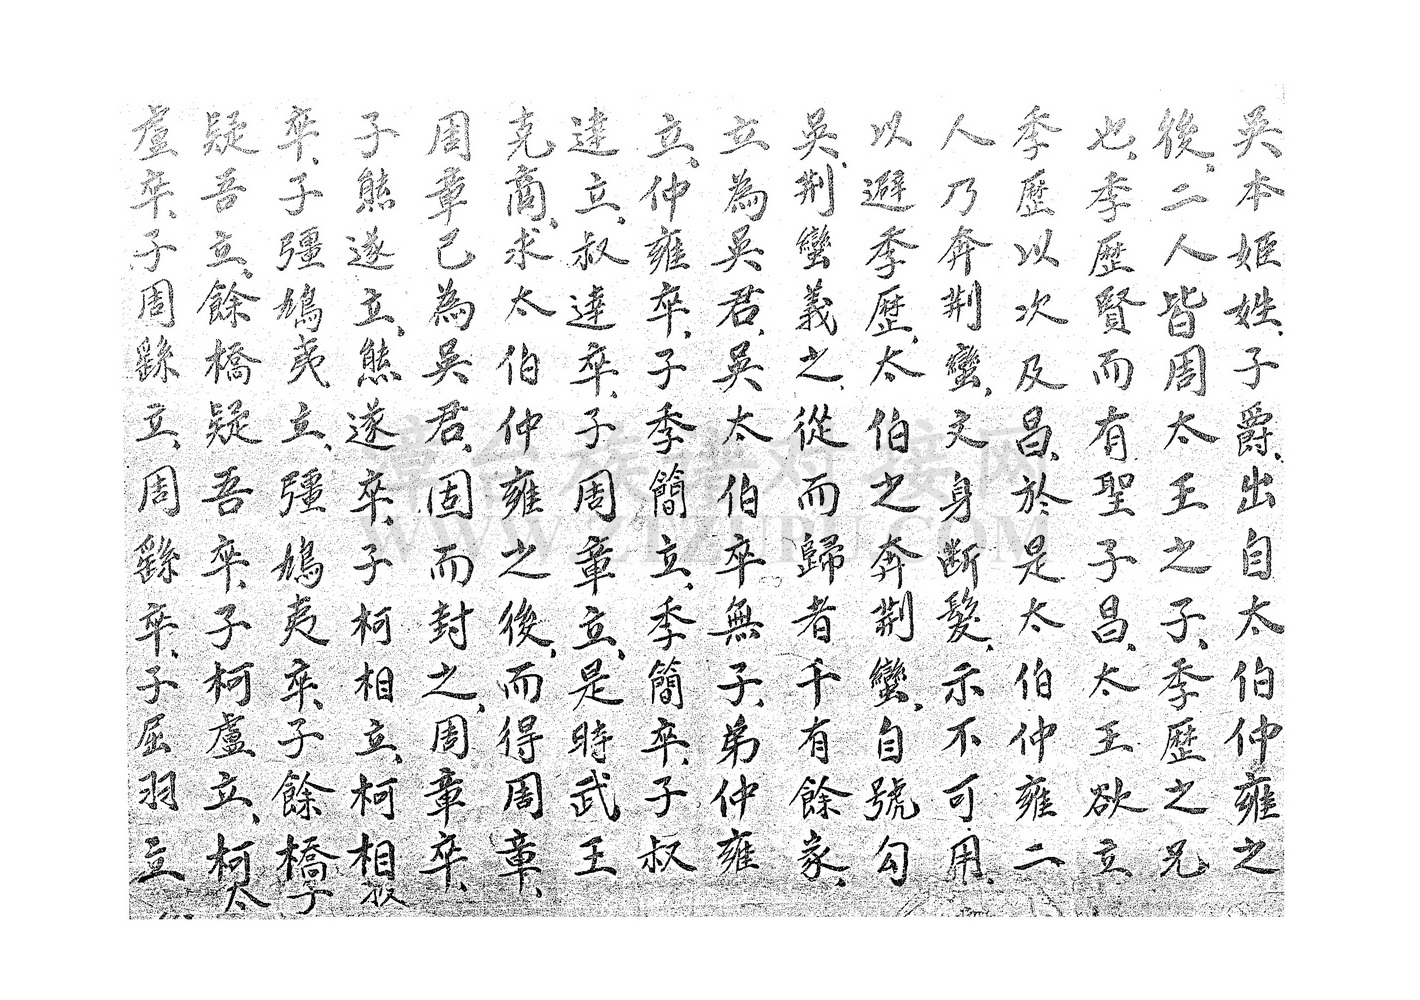 吳本姬姓、子爵、出自太伯仲雍之
後、二人皆周太王之子、季歷之兄
也、季歷賢而有聖子昌、太王欲立
季歷以次及昌、於是太伯仲雍二
人乃奔荆蠻、文身断髮、示不可用、
以避季歷、太伯之奔荆蠻、自號勾
吳、荆蠻義之、從而歸者千有餘家、
立為吳君、吳太伯卒無子、弟仲雍
立、仲雍卒、子季簡立、季簡卒、子叔
達立、叔達卒、子周章立、是時武王
克商、求太伯仲雍之後、而得周章、
周章已為吳君、固而封之、周章卒、
子熊遂立、熊遂卒、子柯相立、柯相
卒、子彊鳩夷立、彊鳩夷卒、子餘橋
疑吾立、餘橋疑吾卒、子柯盧立、柯
盧卒、子周繇立、周繇卒、子屈羽立
漳台族谱对接网
WWW.ZTZUPU.COM